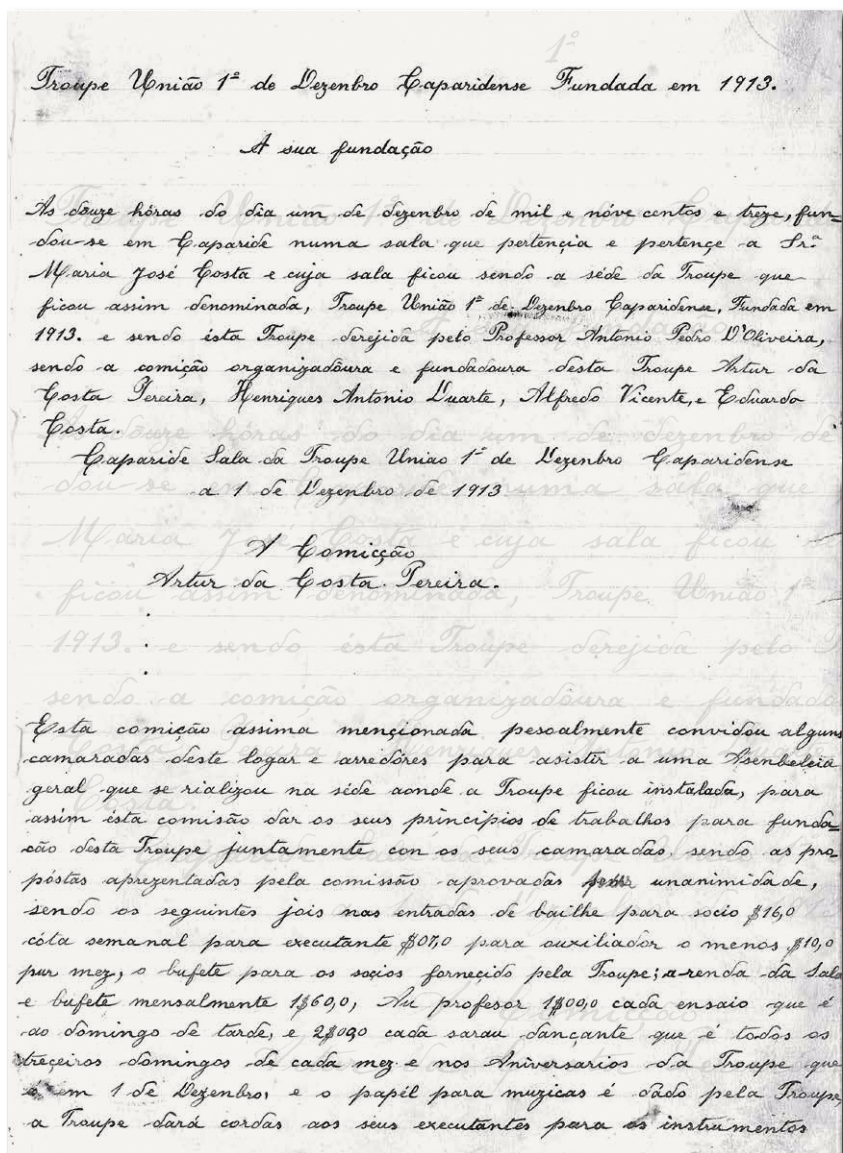 1º
Troupe União 1º de Dezenbro Caparidense Fundada em 1913.
A sua fundação
As douze hóras do dia um de dezenbro de mil e nóve centos e treze, fun=
dou-se em Caparide numa sala que pertencia e pertençe a Srª
Maria José Costa e cuja sala ficou sendo a séde da Troupe que
ficou assim denominada, Troupe União 1º de Dezenbro Caparidense, Fundada em
1913. e sendo ésta Troupe derejida pelo Professor Antonio Pedro D'Oliveira,
sendo a comição organizadôura e fundadoura desta Troupe Artur da
Costa Pereira, Henriques Antonio Duarte, Alfredo Vicente, e Eduardo
Costa.
Caparide Sala da Troupe Uniao 1º de Dezenbro Caparidense
a 1 de Dezenbro de 1913
A Comicção
Artur da Costa Pereira.
Esta comição assima mençionada pesoalmente convidou alguns
camaradas deste logar e arredóres para asistir a uma Asenbeleia
geral que se rializou na séde aonde a Troupe ficou instalada, para
assim ésta comisão dar os seus principios de trabalhos para funda=
cão desta Troupe juntamente con os seus camaradas, sendo as pro
póstas aprezentadas pela comissão aprovadas unanimidade,
sendo os seguintes jois nas entradas de bailhe para socio $16,0
cóta semanal para executante $07,0 para auxiliador o menos $10,0
pur mez, o bufete para os socios fornecido pela Troupe; a renda da Sala
e bufete mensalmente 1$60,0, Au profesor 1$00,0 cada ensaio que é
ao domingo de tarde, e 2$00,0 cada sarau dançante que é todos os
treçeiros domingos de cada mez e nos Aniversarios da Troupe que
é em 1 de Dezenbro, e o papél para muzicas é dádo pela Troupe,
a Troupe dará cordas aos seus executantes para os instrumentos